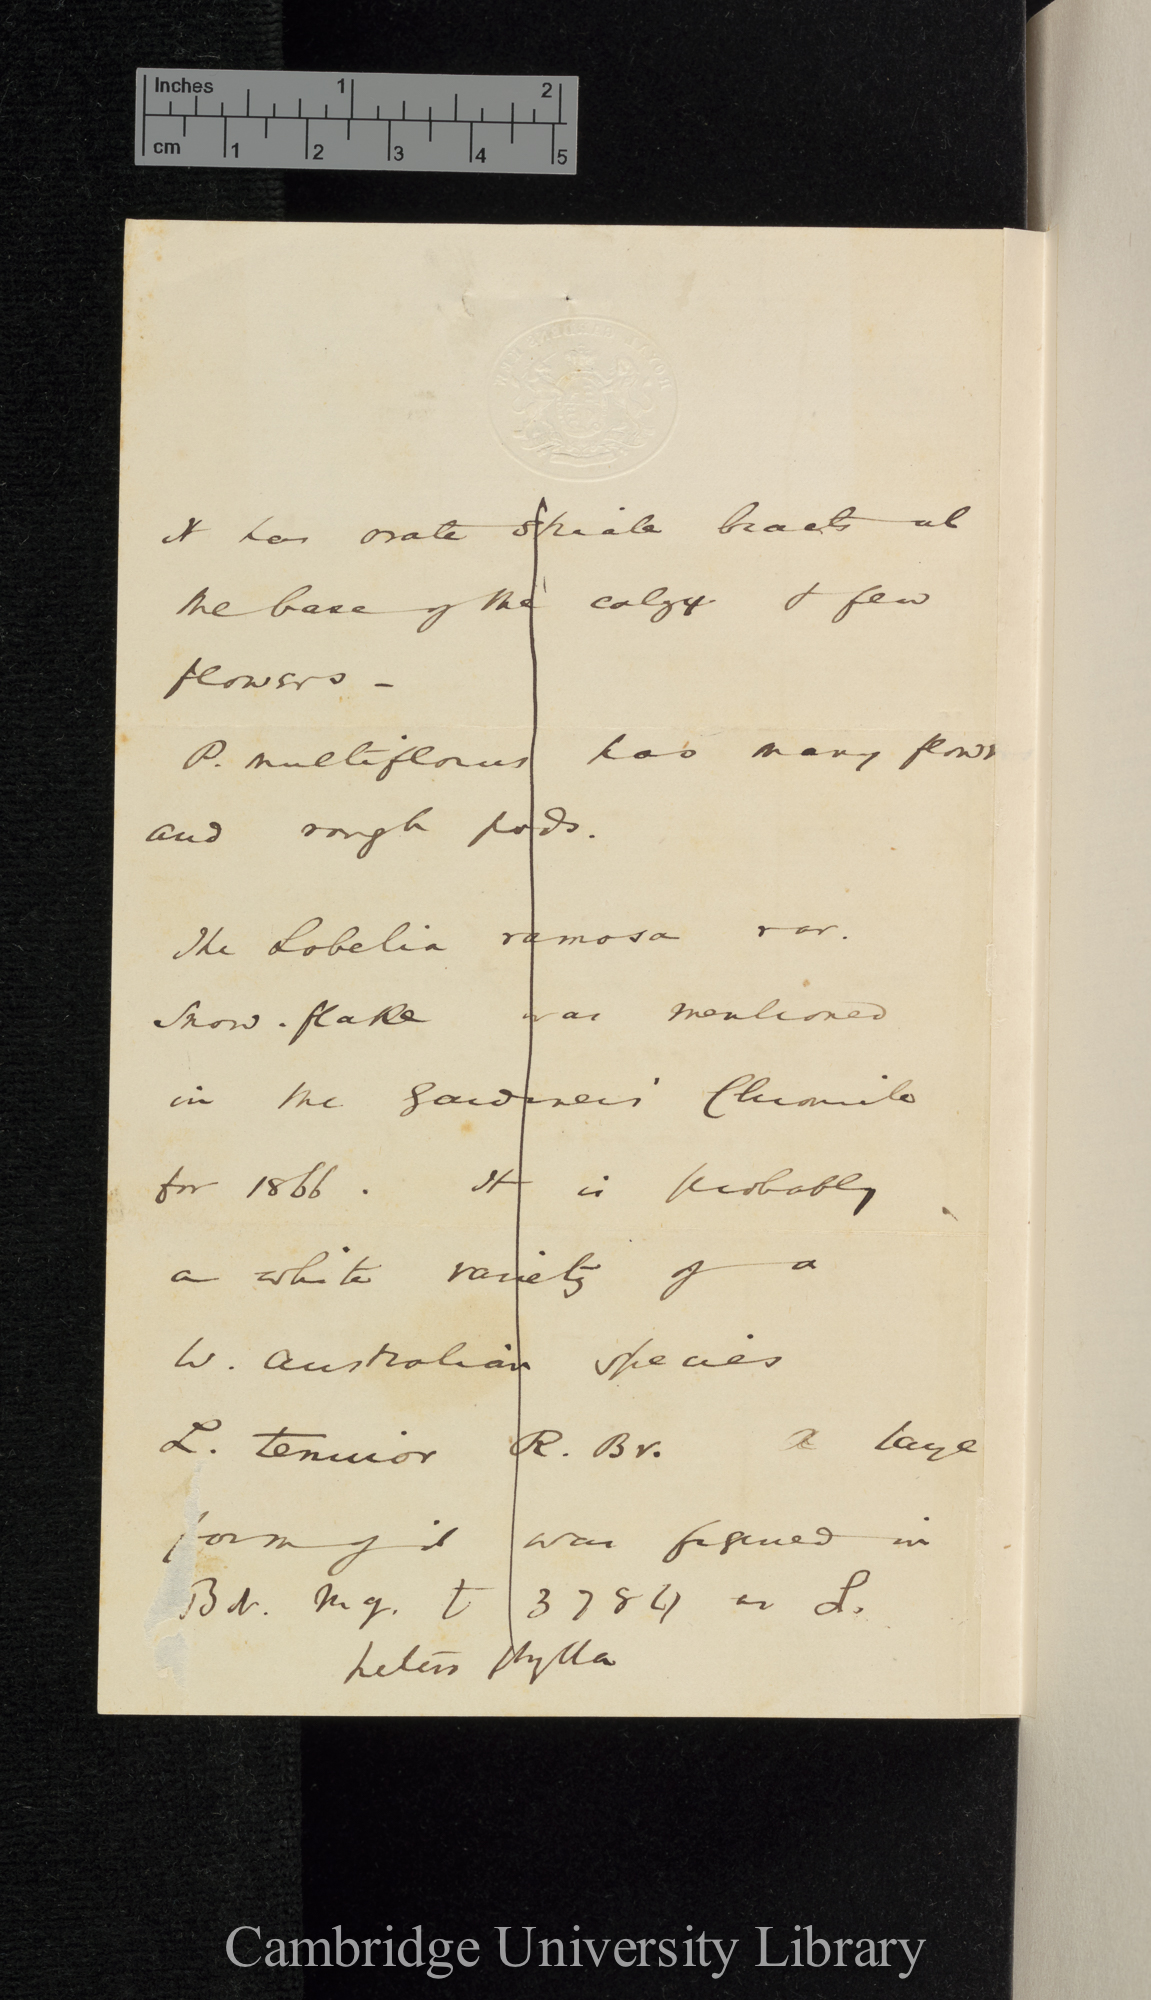 Inches 1 2
cm 1 2 3 4 5
It has ovate striate bracts at
the base of the calyx & few
flowers —
P. multiflorus has many flowrs
and rough pods.
The Lobelia ramosa var.
Snow-flake was mentioned
in the Gardeners' Chronicle
for 1866. It is probably
a white variety of a
W. Australian species
L. tenuior R. Br. A large
form of it was figured in
Bot. Mag. t 3784 as L.
heterophylla
Cambridge University Library